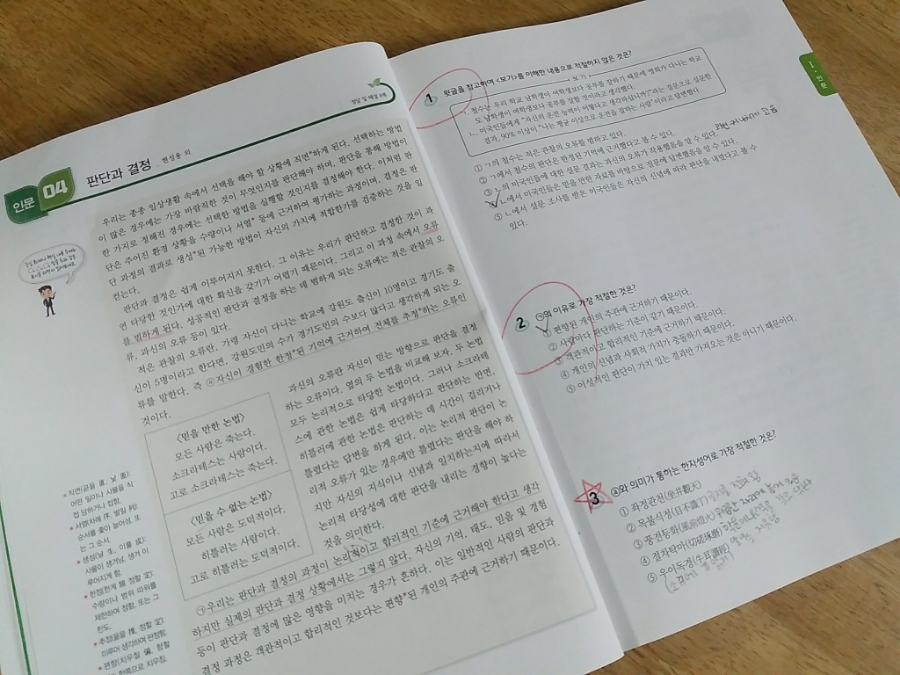 인문 04
판단과 결정
현성용 외
정답 및 해설
우리는 종종 일상생활 속에서 선택을 해야 할 상황에 직면*하게 된다. 선택하는 방법
이 많은 경우에는 가장 바람직한 것이 무엇인지를 판단해야 하며, 판단을 통해 방법이
한 가지로 정해진 경우에는 선택한 방법을 실행할 것인지를 결정해야 한다. 이처럼 판
단은 주어진 환경 상황을 수량이나 서열* 등에 근거하여 평가하는 과정이며, 결정은 판
단 과정의 결과로 생성*된 가능한 방법이 자신의 가치에 적합한가를 검증하는 것을 일
컫는다.
판단과 결정은 쉽게 이루어지지 못한다. 그 이유는 우리가 판단하고 결정한 것이 과
연 타당한 것인가에 대한 확신을 갖기가 어렵기 때문이다. 그리고 이 과정 속에서 오류
를 범하게 된다. 성공적인 판단과 결정을 하는 데 범하게 되는 오류에는 적은 관찰의 오
류, 과신의 오류 등이 있다.
적은 관찰의 오류란, 가령 자신이 다니는 학교에 강원도 출신이 10명이고 경기도 출
신이 5명이라고 한다면, 강원도민의 수가 경기도민의 수보다 많다고 생각하게 되는 오
류를 말한다. 즉 ⓐ자신이 경험한 한정*된 기억에 근거하여 전체를 추정*하는 오류인
것이다.
<믿을 만한 논법>
모든 사람은 죽는다.
소크라테스는 사람이다.
고로 소크라테스는 죽는다.
<믿을 수 없는 논법>
모든 사람은 도덕적이다.
히틀러는 사람이다.
고로 히틀러는 도덕적이다.
과신의 오류란 자신이 믿는 방향으로 판단을 결정
하는 오류이다. 옆의 두 논법을 비교해 보자. 두 논법
모두 논리적으로 타당한 논법이다. 그러나 소크라테
스에 관한 논법은 쉽게 타당하다고 판단하는 반면,
히틀러에 관한 논법은 판단하는 데 시간이 걸리거나
틀렸다는 답변을 하게 된다. 이는 논리적 판단이 논
리적 오류가 있는 경우에만 틀렸다는 판단을 해야 하
지만 자신의 지식이나 신념과 일치하는지에 따라서
논리적 타당성에 대한 판단을 내리는 경향이 높다는
것을 의미한다.
㉠우리는 판단과 결정의 과정이 논리적이고 합리적인 기준에 근거해야 한다고 생각
하지만 실제의 판단과 결정 상황에서는 그렇지 않다. 자신의 기억, 태도, 믿음 및 경험
등이 판단과 결정에 많은 영향을 미치는 경우가 흔하다. 이는 일반적인 사람의 판단과
결정 과정은 객관적이고 합리적인 것보다는 편향*된 개인의 주관에 근거하기 때문이다.
* 직면(곧을 直, 낯 面):
어떤 일이나 사물을 직
접 당하거나 접함.
* 서열(차례 序, 벌일 列):
순서를 좇아 늘어섬. 또
는 그 순서.
* 생성(날 生, 이룰 成):
사물이 생겨남. 생겨 이
루어지게 함.
* 한정(한계 限, 정할 定):
수량이나 범위 따위를
제한하여 정함. 또는 그
한도.
* 추정(옮을 推, 정할 定):
미루어 생각하여 판정함.
* 편향(치우칠 偏, 향할
한쪽으로 치우침.
I. 인문
1 윗글을 참고하여 <보기>를 이해한 내용으로 적절하지 않은 것은?
보기
ㄱ. 철수는 우리 학교 남학생이 여학생보다 공부를 잘하기 때문에 영희가 다니는 학교
도 남학생이 여학생보다 공부를 잘할 것이라고 생각했다.
ㄴ. 미국인들에게 "자신의 운전 능력이 어떻다고 생각하십니까?"라는 질문으로 설문한
결과, 90% 이상이 "나는 평균 이상으로 운전을 잘하는 사람"이라고 답변했다.
① ㄱ의 철수는 적은 관찰의 오류를 범하고 있다.
② ㄱ에서 철수의 판단은 한정된 기억에 근거했다고 볼 수 있다.
③ ㄴ의 미국인들에 대한 설문 결과는 과신의 오류가 작용했음을 알 수 있다.
④ ㄴ에서 미국인들은 믿을 만한 자료를 바탕으로 질문에 답변했음을 알 수 있다.
⑤ ㄴ에서 설문 조사를 받은 미국인들은 자신의 신념에 따라 판단을 내렸다고 볼 수
있다.
2 ㉠의 이유로 가장 적절한 것은?
① 편향된 개인의 주관에 근거하기 때문이다.
② 사람마다 판단하는 기준이 같기 때문이다.
③ 객관적이고 합리적인 기준에 근거하기 때문이다.
④ 개인의 신념과 사회적 가치가 충돌하기 때문이다.
⑤ 이성적인 판단이 가치 있는 결과만 가져오는 것은 아니기 때문이다.
3 ⓐ와 의미가 통하는 한자성어로 가장 적절한 것은?
① 좌정관천(坐井觀天)
② 목불식정(目不識丁)
③ 풍전등화(風前燈火)
④ 절차탁마(切磋琢磨)
⑤ 우이독경(牛耳讀經)